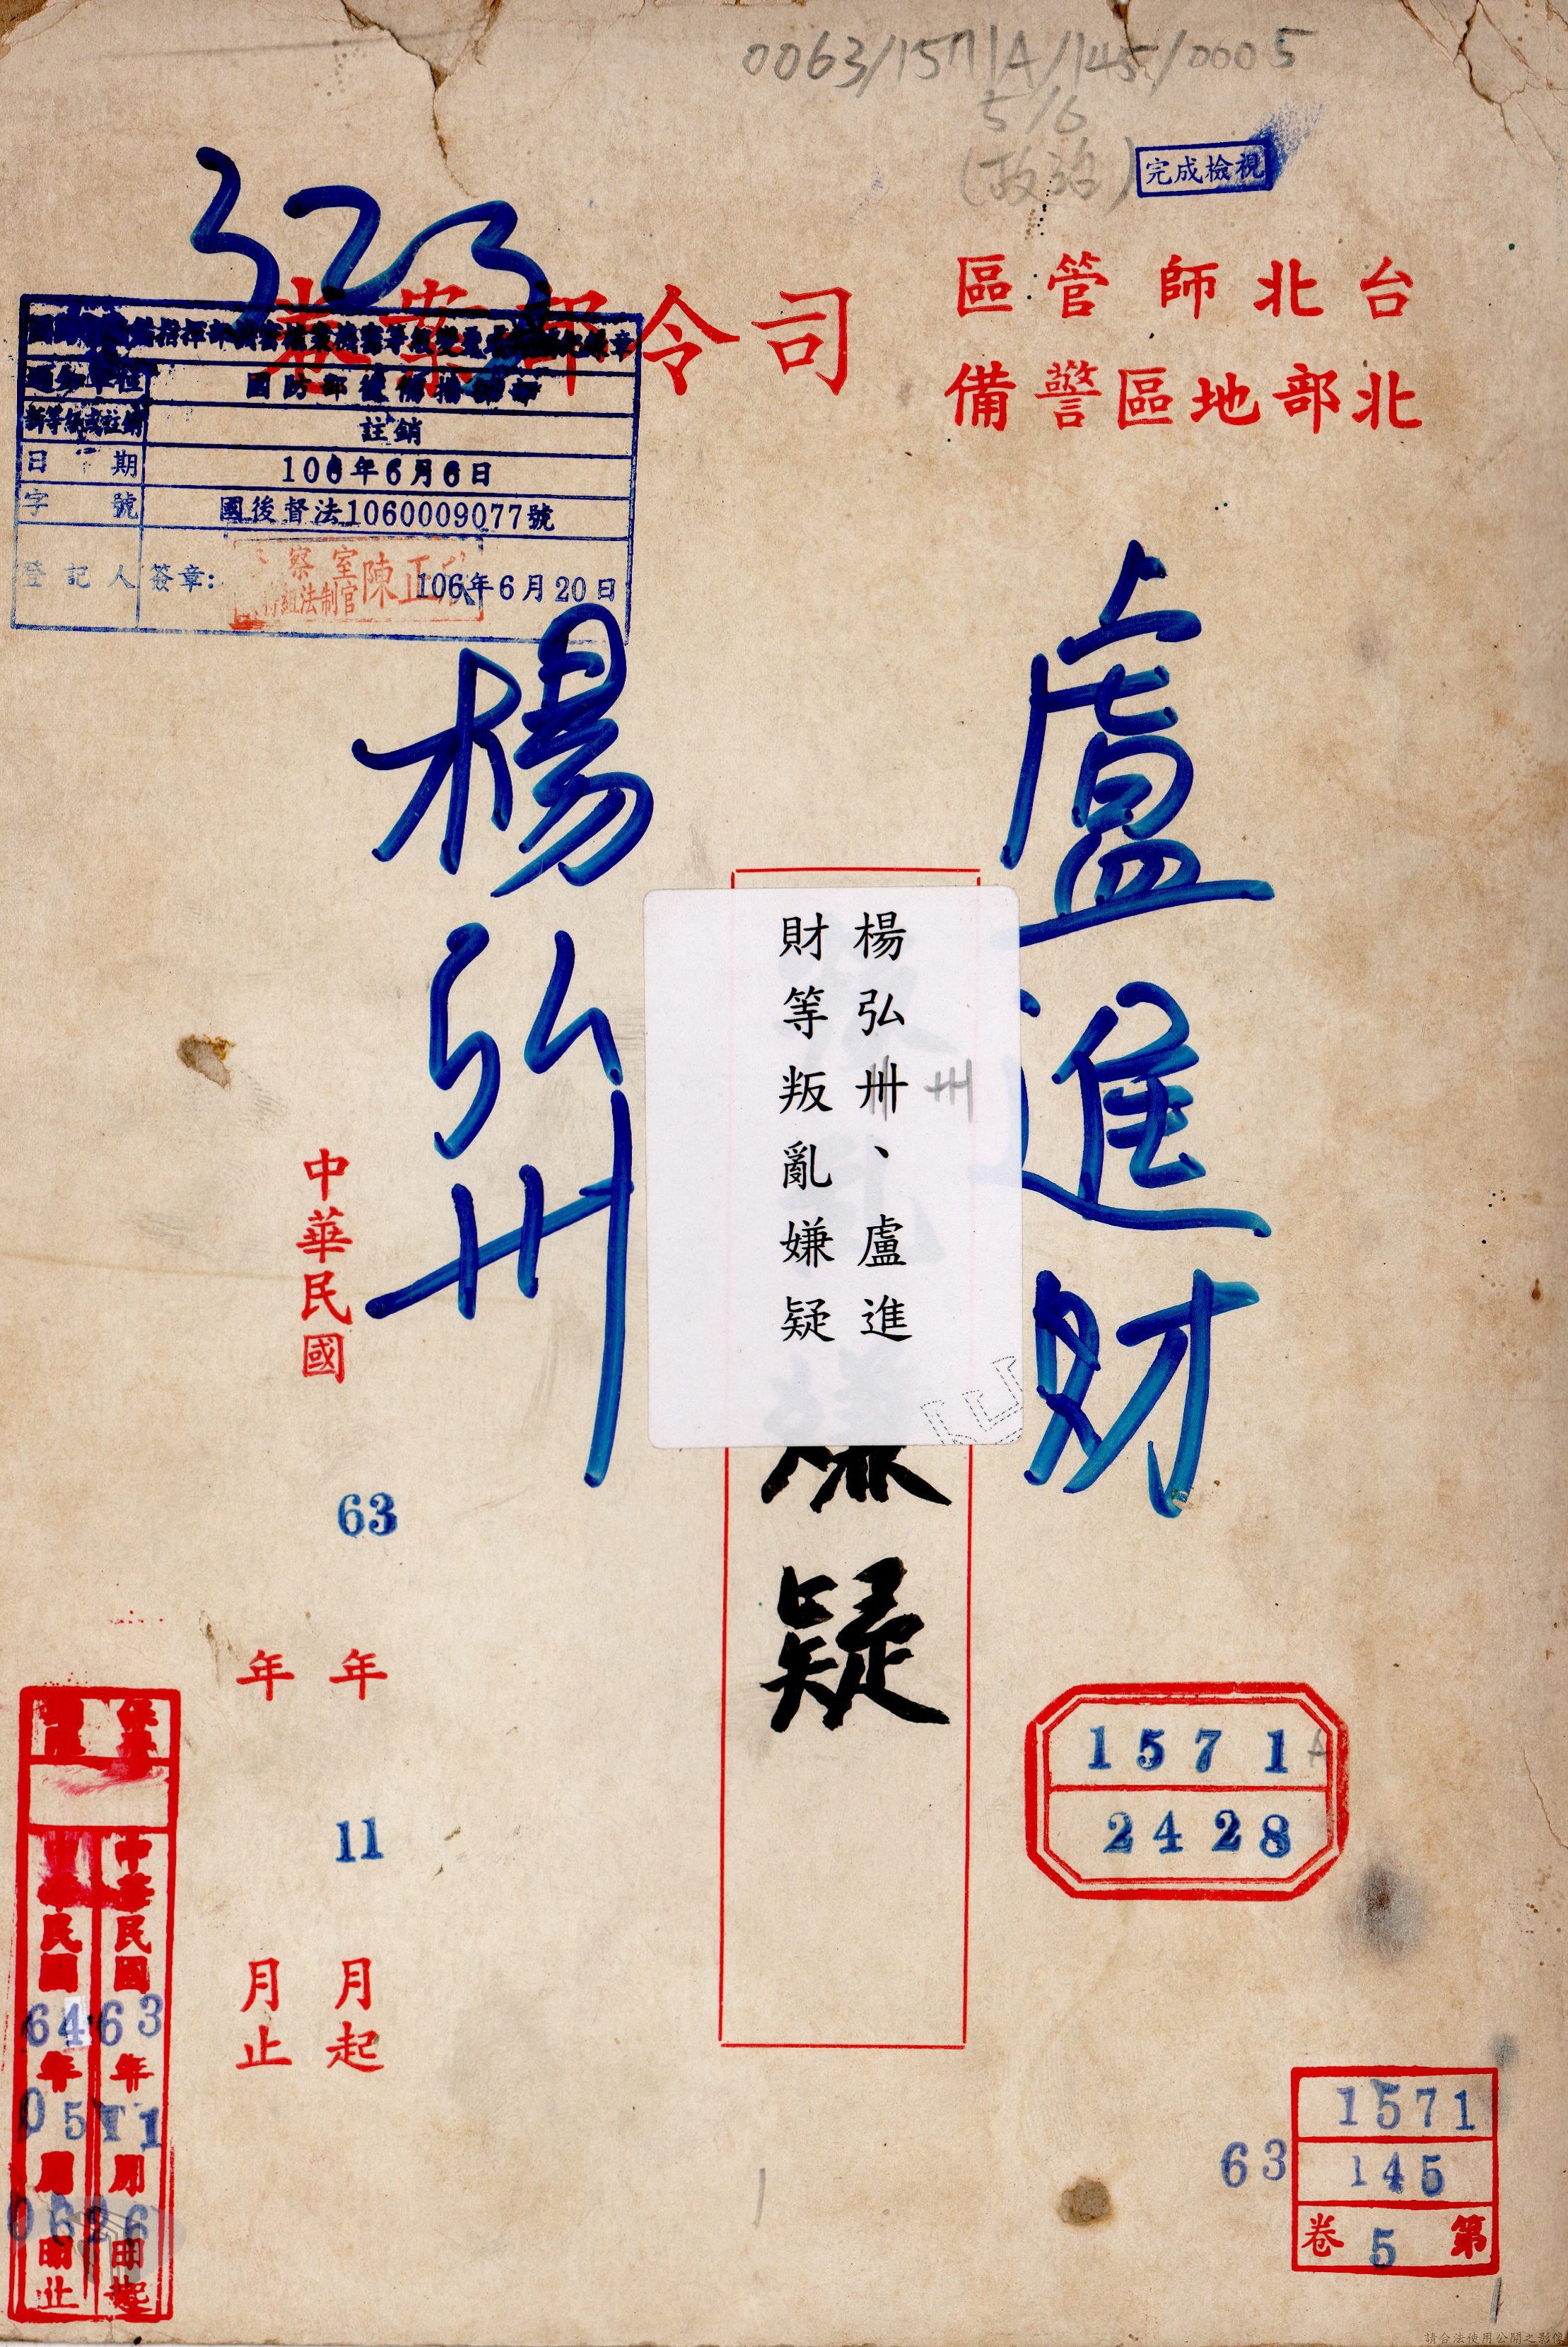 0063/1571A/145/0005
5/6
(政治)
完成檢視
323
台北師管區
北部地區警備
司令部案卷
國防部後備指揮部
註銷
日期
106年6月6日
字號
國後督法1060009077號
登記人
簽章:
察室
組法制官
陳正
106年6月20日
盧進財
楊弘卅、盧進
財等叛亂嫌疑
卅
嫌疑
楊弘卅
中華民國
63
年
11
月起
年
月止
1571A
2428
保存
中華民國63年11月26日起
中華民國64年05月06日止
63
1571
145
第5卷
請合法使用公開之影像